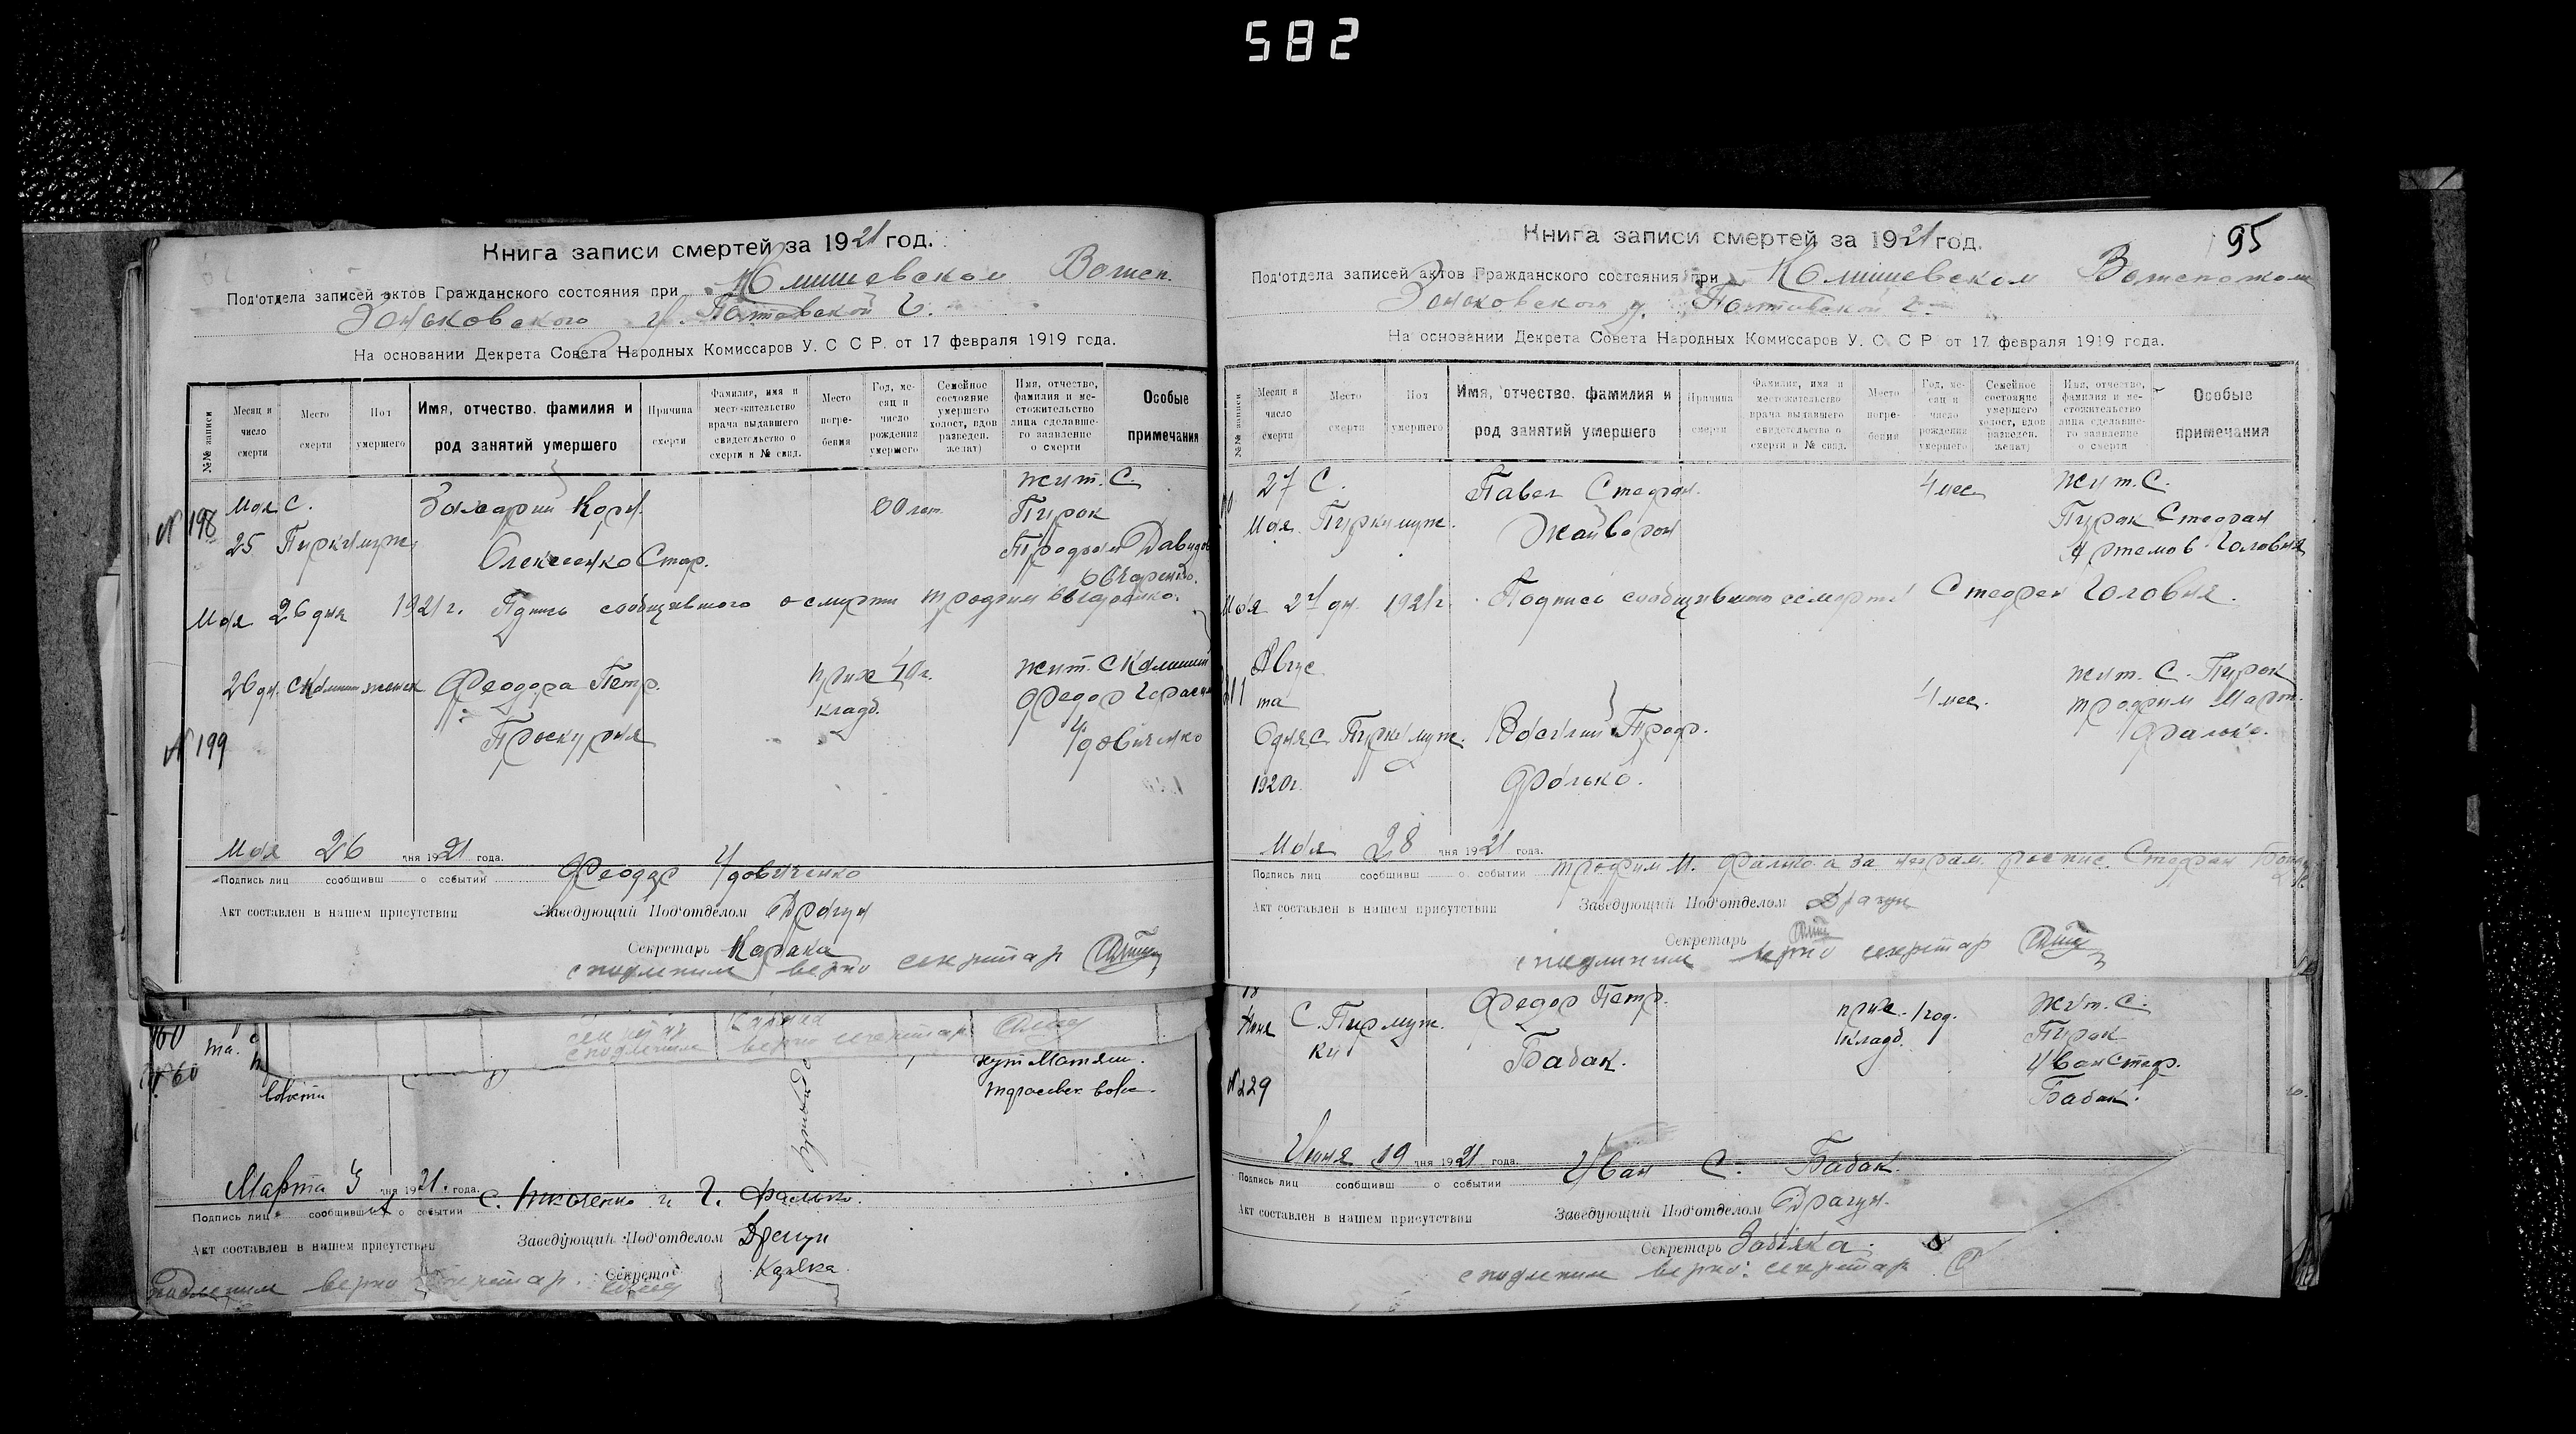 582
Книга записи смертей за 1921 год.
Под'отдела записей актов Гражданского состояния при Комишевском Волисп.
Зеньковского у. Полтавской г.
На основании Декрета Совета Народных Комиссаров У. С С Р. от 17 февраля 1919 года.
№№ записи
Месяц и число смерти
Место смерти
Пол умершего
Имя, отчество. фамилия и род занятий умершего
Причина смерти
Фамилия, имя и местожительство врача выдавшего свидетельство о смерти и № свид.
Место погребения
Год, месяц и число рождения умершего
Семейное состояние умершего холост, вдов разведен. женат)
Имя, отчество, фамилия и местожительство лица сделавшего заявление о смерти
Особые примечания
№ 198
Мая 25
С. Пирки
муж.
Захарий Корн.
Олексенко Стар.
жит. С.
Пирок
Трофим Давидов
Овчаренко.
Мая 26 дня 1921 г. Подпись сообщившего о смерти Трофим Овчаренко.
№ 199
26 дн.
женск
Феодора Петр.
Проскурня
прих кладб.
жит. С
Федор Герасим
Удовиченко
Мая 26 дня 1921 года.
Подпись лиц сообщивш о событии Феодор Удовиченко
Акт составлен в нашем присутствии
Заведующий Под'отделом Драгун
Секретарь
с подлиним верно секретар
№ 60
хут
Марта 3 дня 1921. года.
Подпись лиц сообщивш о событии
Г. Фалько.
Акт составлен в нашем присутствии
Заведующий Под'отделом Драгун
Секретарь
подлиним верно секретар.
95
Книга записи смертей за 1921 год.
Под'отдела записей актов Гражданского состояния при Комишевском Волисполком
Зеньковского у. Полтавской г.
На основании Декрета Совета Народных Комиссаров У. С. С Р от 17 февраля 1919 года.
№№ записи
Месяц и число смерти
Место смерти
Пол умершего
Имя, отчество. фамилия и род занятий умершего
Причина смерти
Фамилия, имя и местожительство врача выдавшего свидетельство о смерти и № свид.
Место погребения
Год, месяц и число рождения умершего
Семейное состояние умершего холост, вдов разведен. женат)
Имя, отчество, фамилия и местожительство лица сделавшего заявление о смерти
Особые примечания
27 Мая
С. Пирки
муж.
Павел Стефан.
Жайворон
4 мес.
жит. С.
Пирок Стефан
Артемов Головня
Мая 27 дн. 1921 г. Подпись сообщившего о смерти Стефан Головня.
Августа
6 дня
1920 г.
С Пирки
муж.
Василий Троф.
Фалько.
4 мес.
жит. С. Пирок
Трофим Март.
Фалько.
Мая 28 дня 1921 года.
Подпись лиц сообщивш о событии Трофим М. Фалько а за неграм. роспис. Стефан
Акт составлен в нашем присутствии
Заведующий Под'отделом Драгун
Секретарь
с подлиним верно секретар
18 Июня
С. Пирки
муж.
№ 229
Федор Петр.
Бабак.
прих. кладб.
1 год.
жит. С.
Пирок
Иван Стеф.
Бабак.
Июня 19 дня 1921 года.
Подпись лиц сообщивш о событии Иван С. Бабак.
Акт составлен в нашем присутствии
Заведующий Под'отделом Драгун.
Секретарь
с подлиним верно: секретар